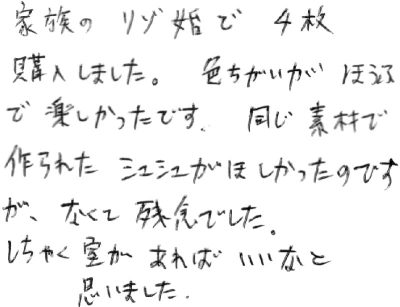 家族の リゾ婚で 4枚
購入しました。 色ちがいが ほう
で 楽しかったです. 同じ 素材で
作られた シュシュがほしかったのです
が、なくて 残念でした。
しちゃく室が あれば いいなと
思いました.